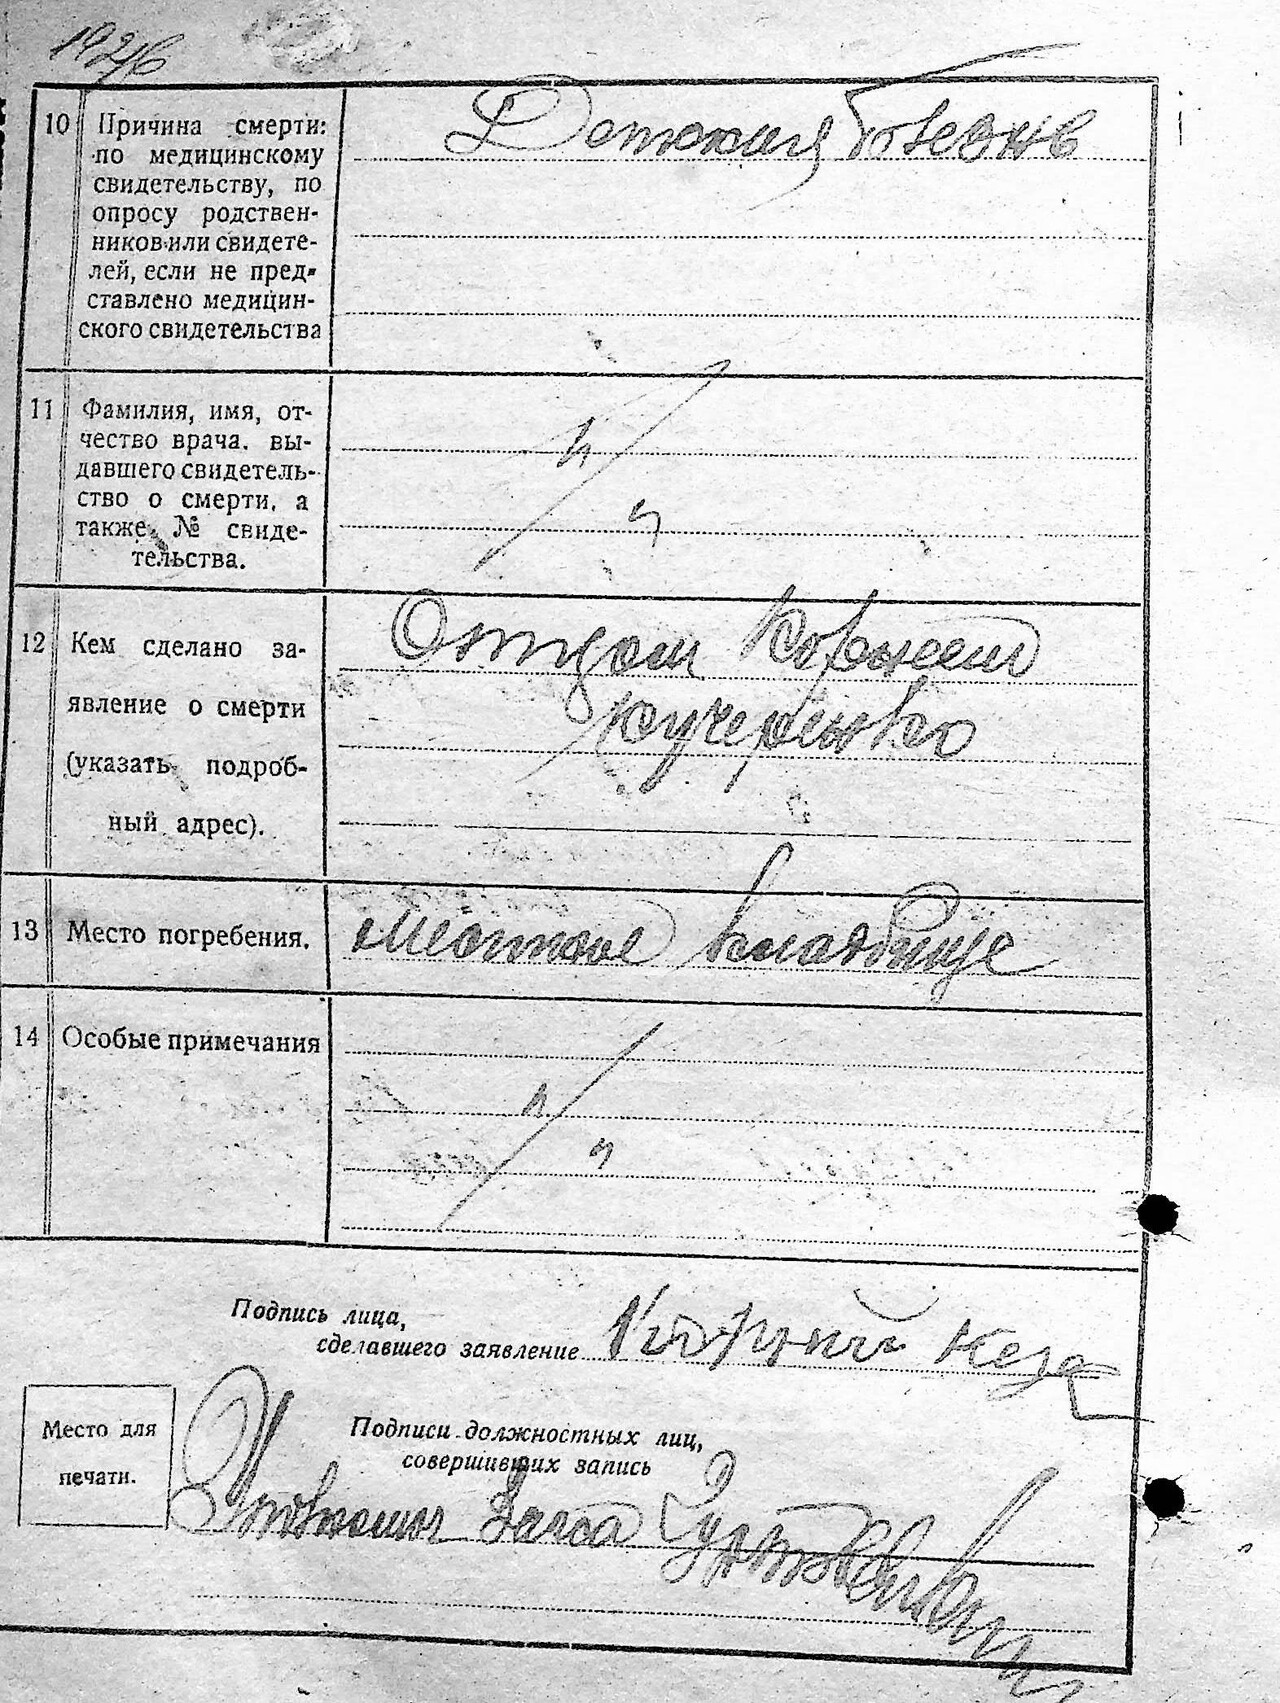 1926
10 Причина смерти:
по медицинскому
свидетельству, по
опросу родствен-
ников или свидете-
лей, если не пред-
ставлено медицин-
ского свидетельства
Детская болезнь
11 Фамилия, имя, от-
чество врача, вы-
давшего свидетель-
ство о смерти, а
также № свиде-
тельства.
12 Кем сделано за-
явление о смерти
(указать подроб-
ный адрес).
Отцом Корнеем
Кучеренко
13 Место погребения.
Местное кладбище
14 Особые примечания
Подпись лица,
сделавшего заявление Корний
Место для
печати.
Подписи должностных лиц,
совершивших запись
Загса